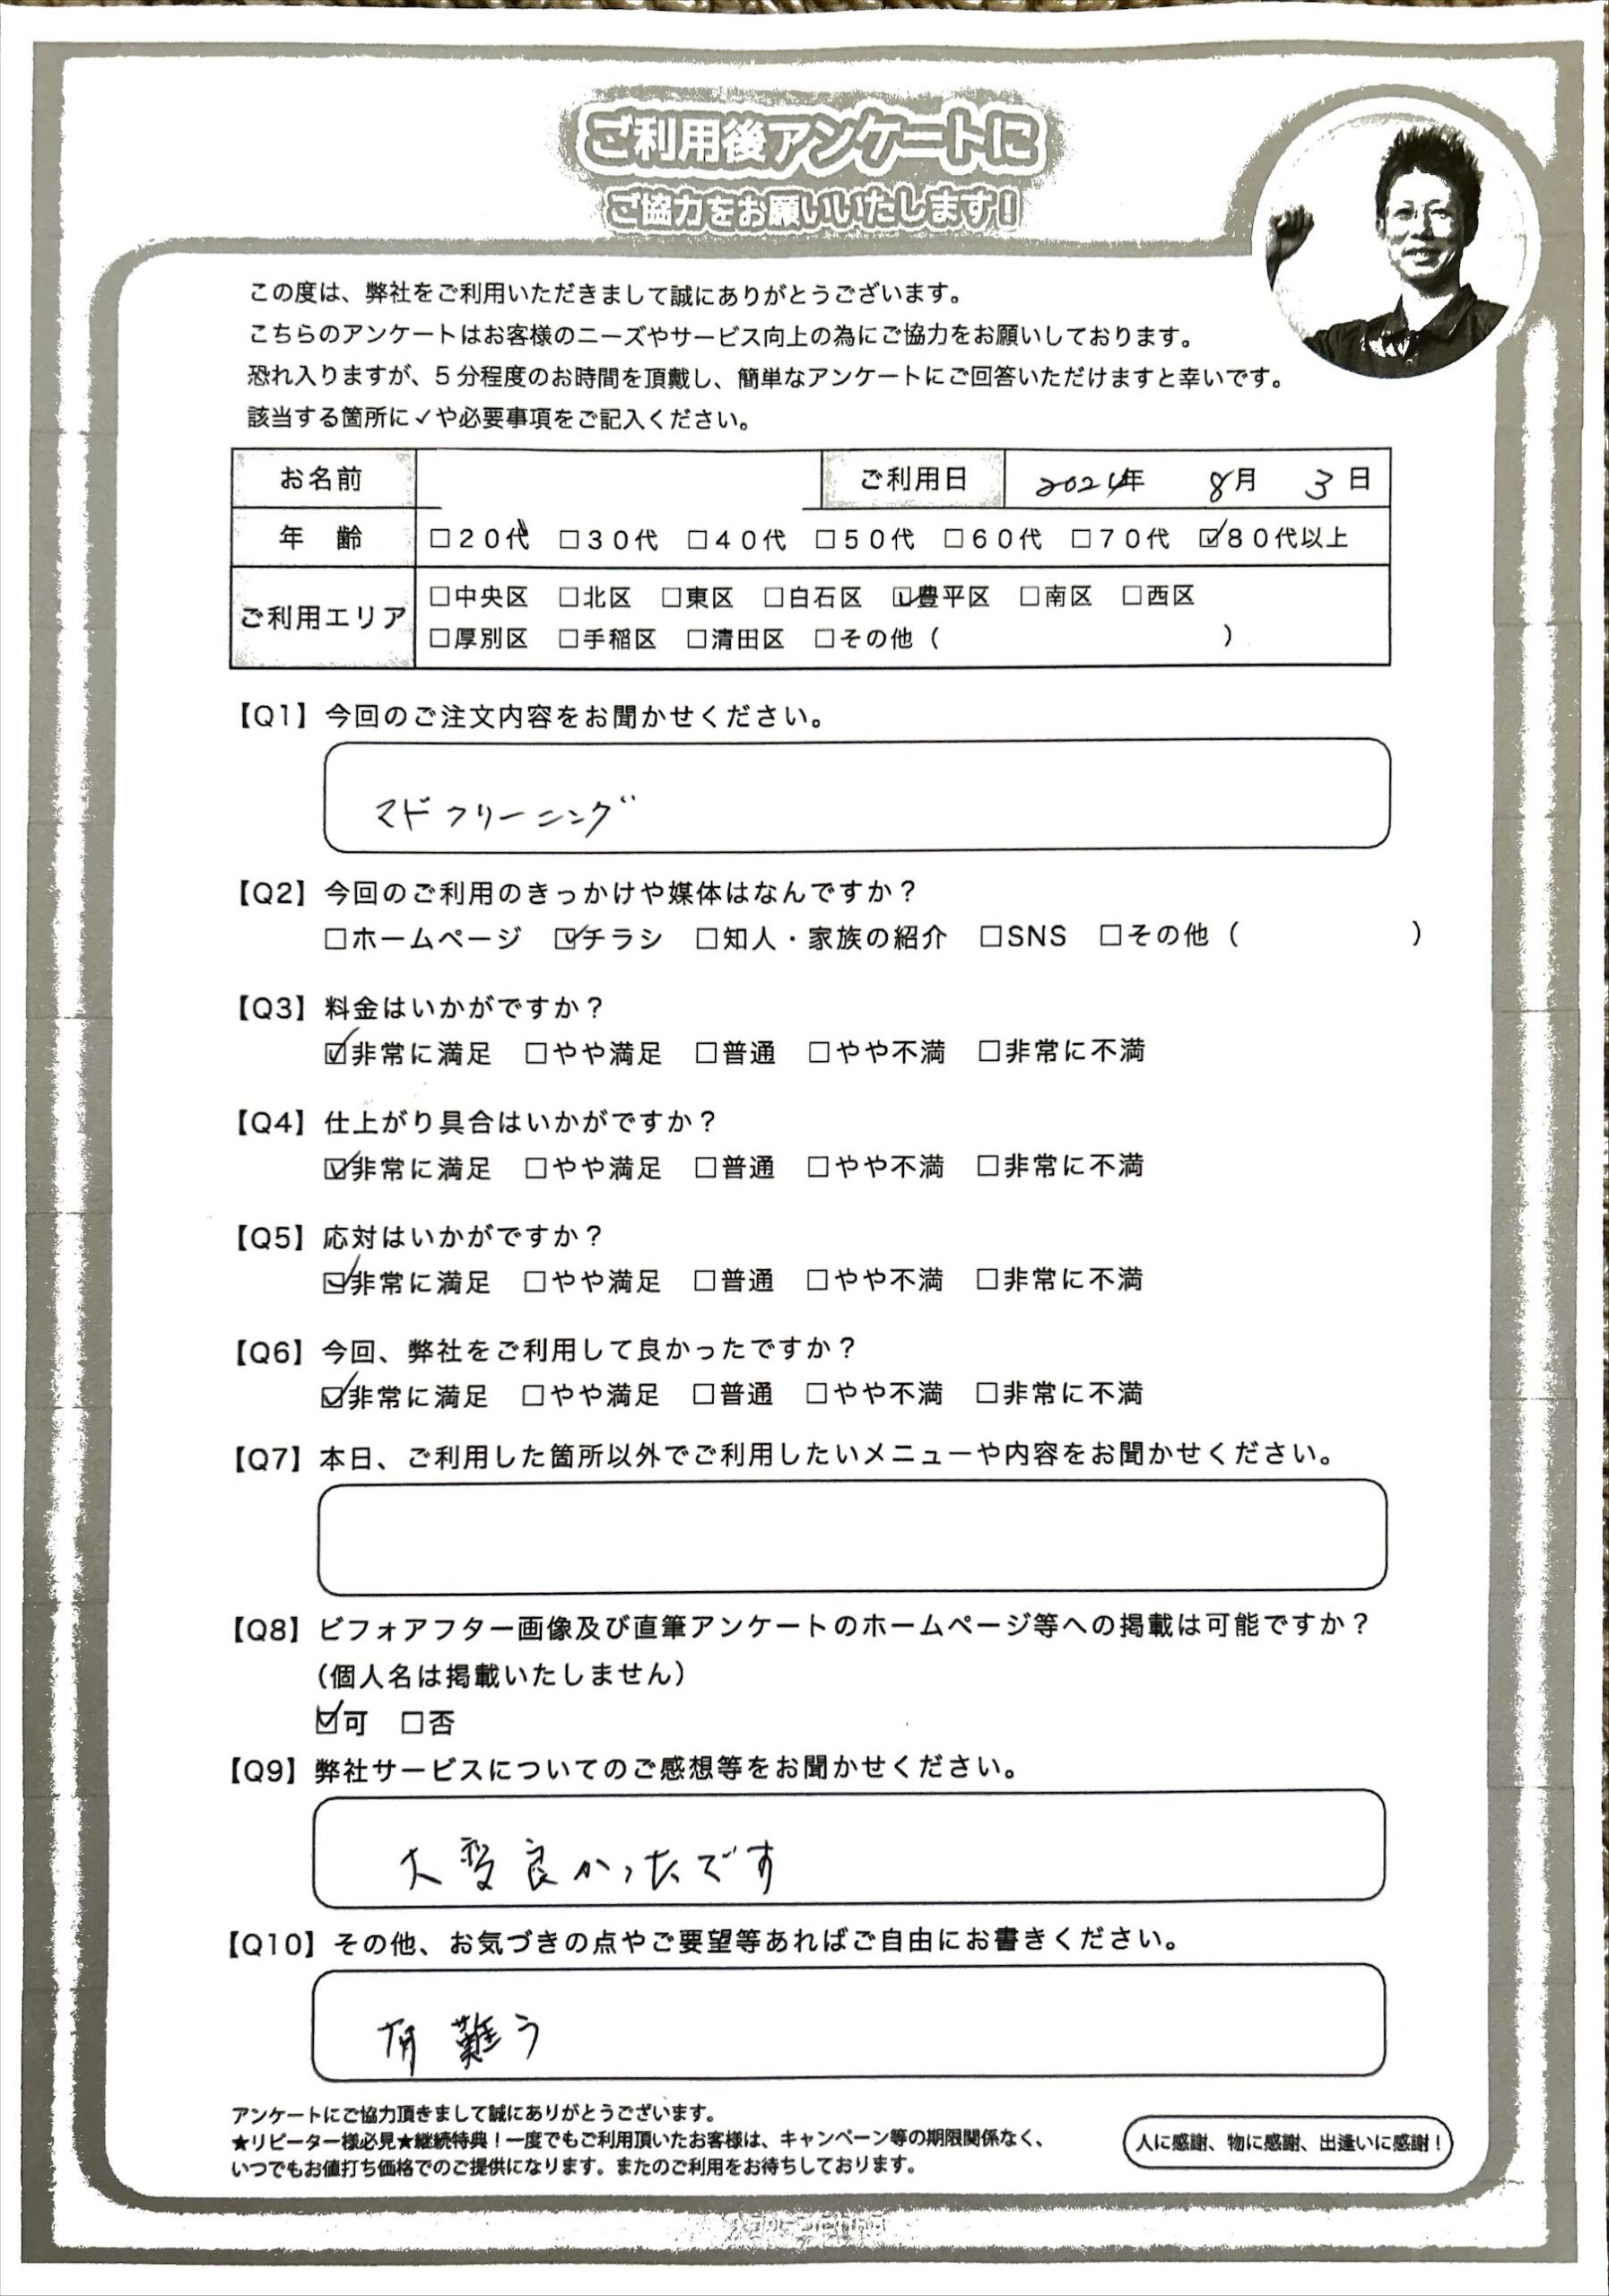 ご利用後アンケートに
ご協力をお願いいたします!
この度は、弊社をご利用いただきまして誠にありがとうございます。
こちらのアンケートはお客様のニーズやサービス向上の為にご協力をお願いしております。
恐れ入りますが、5分程度のお時間を頂戴し、簡単なアンケートにご回答いただけますと幸いです。
該当する箇所に✓や必要事項をご記入ください。
お名前 ご利用日 2024年 8月 3日
年 齢 □20代 □30代 □40代 □50代 □60代 □70代 ☑80代以上
ご利用エリア □中央区 □北区 □東区 □白石区 ☑豊平区 □南区 □西区
□厚別区 □手稲区 □清田区 □その他( )
【Q1】今回のご注文内容をお聞かせください。
マドクリーニング
【Q2】今回のご利用のきっかけや媒体はなんですか?
□ホームページ ☑チラシ □知人・家族の紹介 □SNS □その他( )
【Q3】料金はいかがですか?
☑非常に満足 □やや満足 □普通 □やや不満 □非常に不満
【Q4】仕上がり具合はいかがですか?
☑非常に満足 □やや満足 □普通 □やや不満 □非常に不満
【Q5】応対はいかがですか?
☑非常に満足 □やや満足 □普通 □やや不満 □非常に不満
【Q6】今回、弊社をご利用して良かったですか?
☑非常に満足 □やや満足 □普通 □やや不満 □非常に不満
【Q7】本日、ご利用した箇所以外でご利用したいメニューや内容をお聞かせください。
【Q8】ビフォアフター画像及び直筆アンケートのホームページ等への掲載は可能ですか?
(個人名は掲載いたしません)
☑可 □否
【Q9】弊社サービスについてのご感想等をお聞かせください。
大変良かったです
【Q10】その他、お気づきの点やご要望等あればご自由にお書きください。
有難う
アンケートにご協力頂きまして誠にありがとうございます。
★リピーター様必見★継続特典!一度でもご利用頂いたお客様は、キャンペーン等の期限関係なく、
いつでもお値打ち価格でのご提供になります。またのご利用をお待ちしております。
人に感謝、物に感謝、出逢いに感謝!